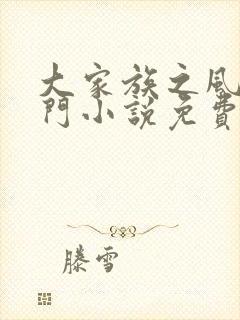 大家族之風
門小說免費
滕雪